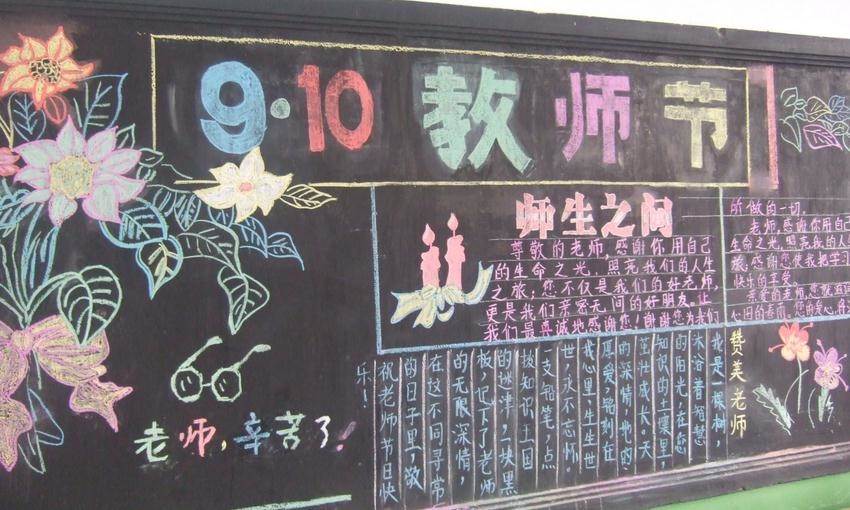 9·10 教师节
师生之间
尊敬的老师,感谢你用自己
的生命之光,照亮我们的人生
之旅;您不仅是我们的好老师,
更是我们亲密无间的好朋友。让
我们最真诚地感谢您!谢谢您为我们
所做的一切。
老师,感谢你用自己
生命之光,照亮我的人
旅,感谢您使我把学习
快乐的享受。
赞美老师
我是一棵树,
沐浴着智慧
的阳光,在您
知识的土壤里,
茁壮成长,天
的深情,地的
厚爱,铭刻在
我心里,生生世
世,永不忘怀。
一支铅笔,点
拨知识王国
的迷津,一块黑
板,记下了老师
的无限深情,
在这不同寻常
的日子里,敬
祝老师节日快
乐!
老师,辛苦了!